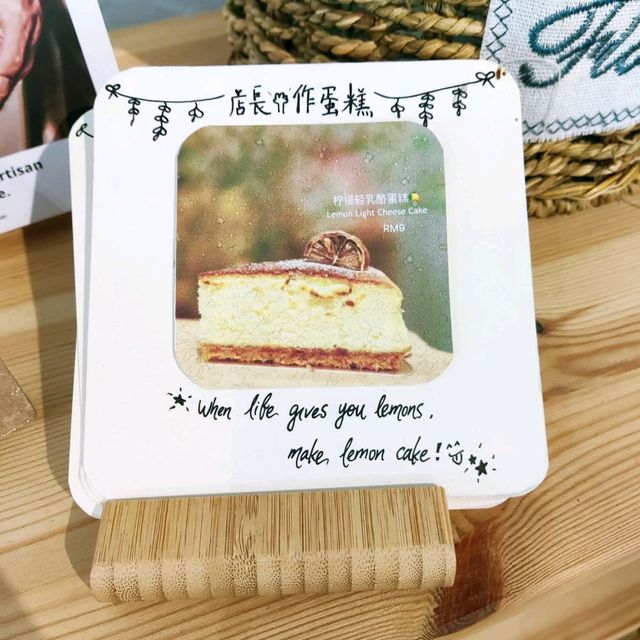 店長の作蛋糕
柠檬轻乳酪蛋糕🍋
Lemon Light Cheese Cake
RM9
when life gives you lemons,
make lemon cake!
rtisan
e.